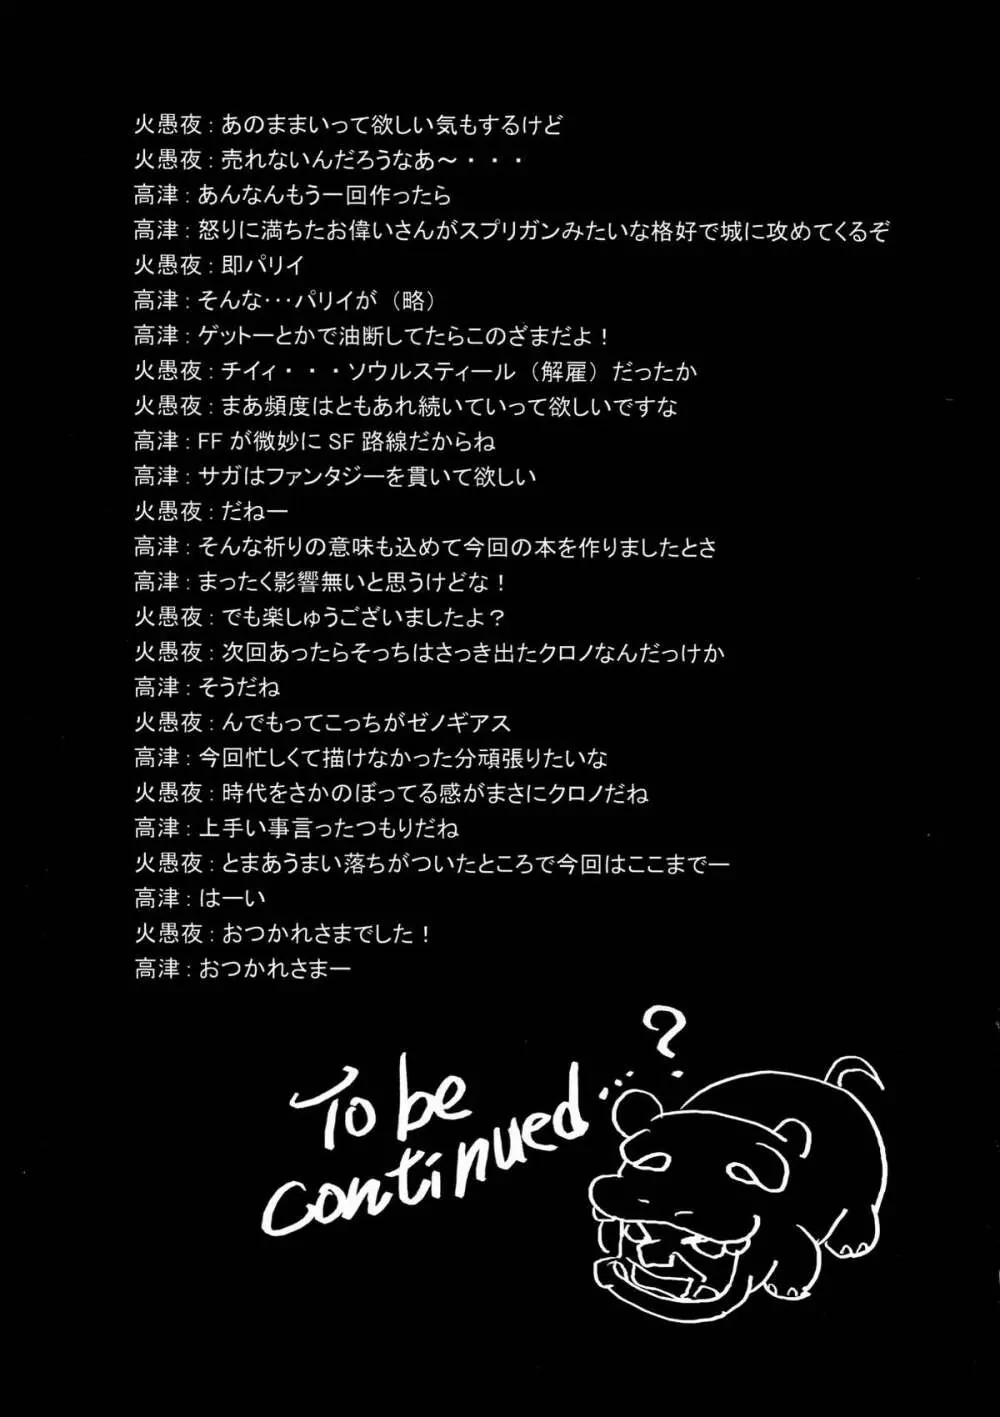 火愚夜：あのままいって欲しい気もするけど
火愚夜：売れないんだろうなあ～・・・
高津：あんなんもう一回作ったら
高津：怒りに満ちたお偉いさんがスプリガンみたいな格好で城に攻めてくるぞ
火愚夜：即パリイ
高津：そんな･･･パリイが（略）
高津：ゲットーとかで油断してたらこのざまだよ！
火愚夜：チイィ・・・ソウルスティール（解雇）だったか
火愚夜：まあ頻度はともあれ続いていって欲しいですな
高津：FFが微妙にSF路線だからね
高津：サガはファンタジーを貫いて欲しい
火愚夜：だねー
高津：そんな祈りの意味も込めて今回の本を作りましたとさ
高津：まったく影響無いと思うけどな！
火愚夜：でも楽しゅうございましたよ？
火愚夜：次回あったらそっちはさっき出たクロノなんだっけか
高津：そうだね
火愚夜：んでもってこっちがゼノギアス
高津：今回忙しくて描けなかった分頑張りたいな
火愚夜：時代をさかのぼってる感がまさにクロノだね
高津：上手い事言ったつもりだね
火愚夜：とまあうまい落ちがついたところで今回はここまでー
高津：はーい
火愚夜：おつかれさまでした！
高津：おつかれさまー
To be
continued...?